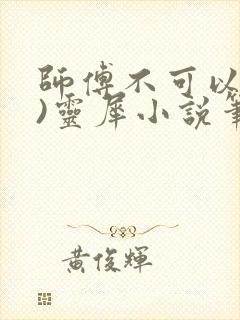 師傅不可以
)靈犀小說筆
黃俊輝